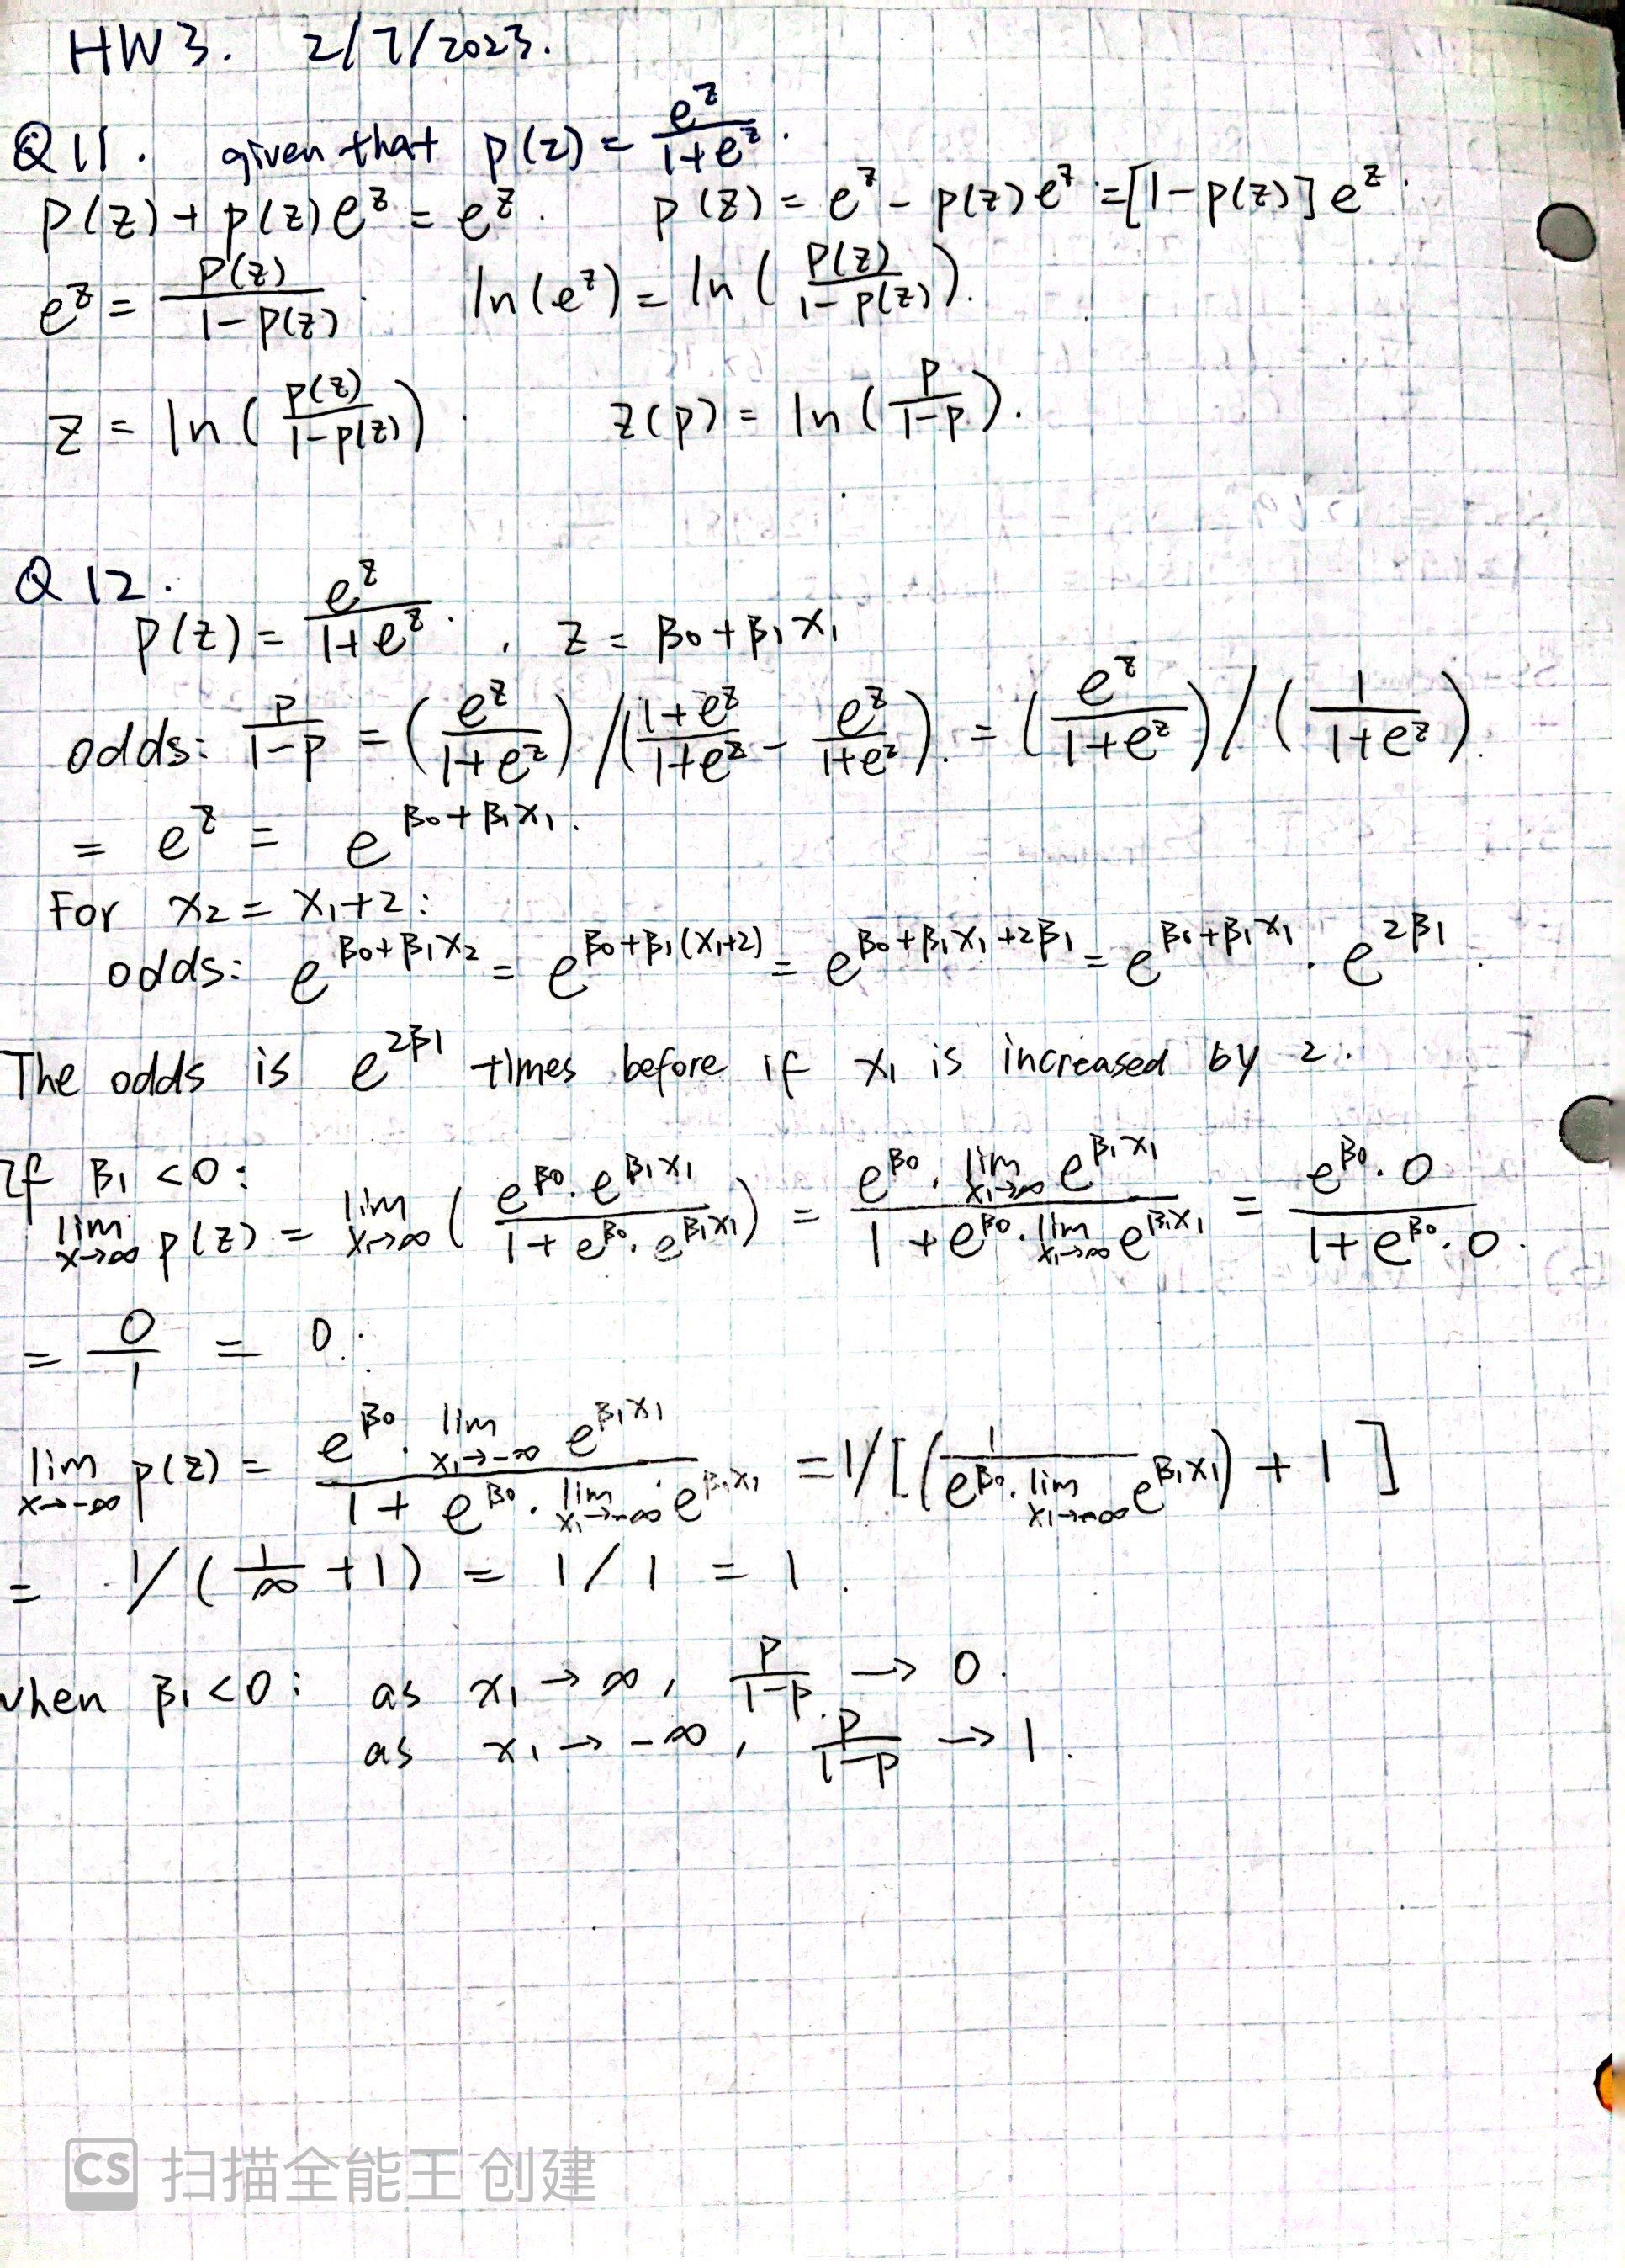 HW3. 2/7/2023.
Q11. given that p(z) = e^z / (1+e^z).
p(z) + p(z)e^z = e^z. p(z) = e^z - p(z)e^z = [1-p(z)] e^z.
e^z = p(z) / (1-p(z)). ln(e^z) = ln( p(z) / (1-p(z)) ).
z = ln( p(z) / (1-p(z)) ). z(p) = ln( p / (1-p) ).
Q12.
p(z) = e^z / (1+e^z). , z = β0 + β1 x1
odds: p / (1-p) = ( e^z / (1+e^z) ) / ( (1+e^z) / (1+e^z) - e^z / (1+e^z) ). = ( e^z / (1+e^z) ) / ( 1 / (1+e^z) ).
= e^z = e^(β0 + β1x1).
For x2 = x1+2:
odds: e^(β0+β1x2) = e^(β0+β1(x1+2)) = e^(β0+β1x1+2β1) = e^(β0+β1x1) · e^(2β1).
The odds is e^(2β1) times before if x1 is increased by 2.
If β1 < 0:
lim x→∞ p(z) = lim x1→∞ ( e^β0 · e^(β1x1) / (1 + e^β0 · e^(β1x1)) ) = e^β0 · lim x1→∞ e^(β1x1) / (1 + e^β0 · lim x1→∞ e^(β1x1)) = e^β0 · 0 / (1 + e^β0 · 0).
= 0/1 = 0.
lim x→-∞ p(z) = e^β0 · lim x1→-∞ e^(β1x1) / (1 + e^β0 · lim x1→-∞ e^(β1x1)) = 1/[( 1 / (e^β0 · lim x1→-∞ e^(β1x1)) ) + 1 ]
= 1/( 1/∞ + 1) = 1/1 = 1.
when β1 < 0: as x1 → ∞, p / (1-p) → 0.
as x1 → -∞, p / (1-p) → 1.
CS 扫描全能王 创建